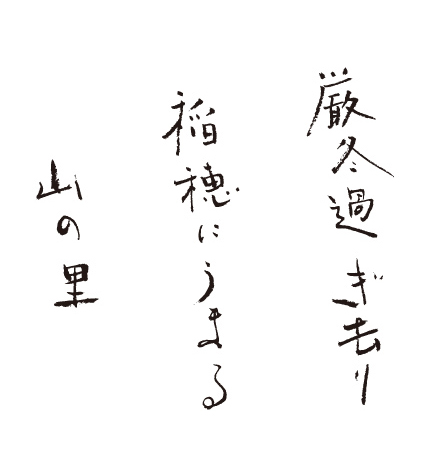 厳冬過ぎ去り
稲穂にうまる
山の里